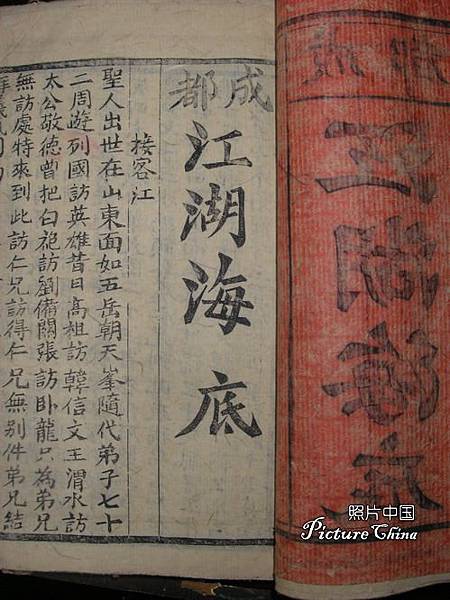 成都
江湖海底
接客江
聖人出世在山東面如五岳朝天峯隨代弟子七十
二周遊列國訪英雄昔日高祖訪韓信文王渭水訪
太公敬德曾把白袍訪劉備關張訪卧龍只為弟兄
無訪處特來到此訪仁兄訪得仁兄無别件弟兄結
照片中国
PictureChina